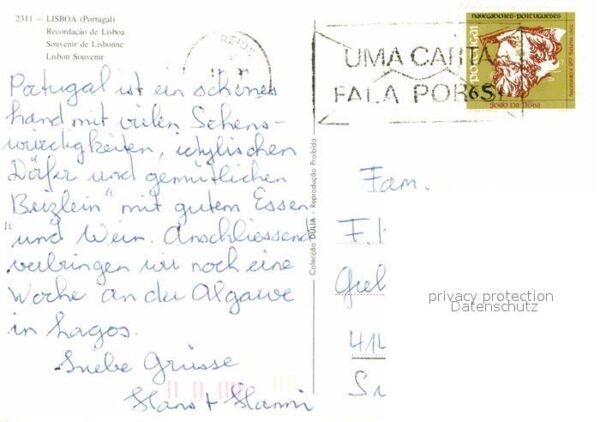 2311 - LISBOA (Portugal)
Recordação de Lisboa
Souvenir de Lisbonne
Lisbon Souvenir
NAVEGADORES PORTUGUESES
portugal
JOÃO DA NOVA
UMA CARTA
FALA POR SI
65
Portugal ist ein schönes
Land mit vielen Sehens-
würdigkeiten, idyllischen
Dörfer und gemütlichen
Beizlein" mit gutem Essen
"und Wein. Anschliessend
verbringen wir noch eine
Woche an der Algarve
in Lagos.
Liebe Grüsse
Hans + Hanni
Colecção DÚLIA - Reprodução Proibida
Fam.
F. H
414
privacy protection
Datenschutz